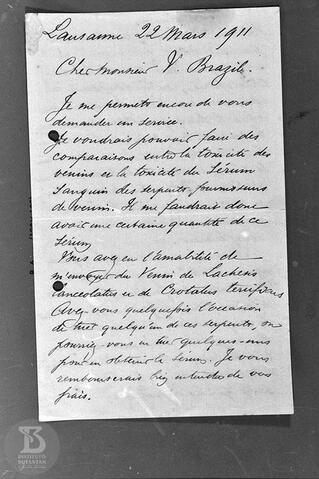 Lausanne 22 Mars 1911
Cher Monsieur V. Brazil.
Je me permets encore de vous
demander un service.
Je voudrais pouvoir faire des
comparaisons entre la toxicité des
venins et la toxicité du Serum
Sanguin des serpents, fournisseurs
de venin. Il me faudrait donc
avoir une certaine quantité de ce
Sérum
Vous avez eu l'amabilité de
m'envoyer du Venin de Lachesis
lanceolatus et de Crotalus terrificus
Avez vous quelquefois l'occasion
de tuer quelqu'un de ces serpents, ou
pourriez-vous en tuer quelques-uns
pour en obtenir le serum. Je vous
rembourserais bien entendu de vos
frais.
INSTITUTO
BUTANTAN